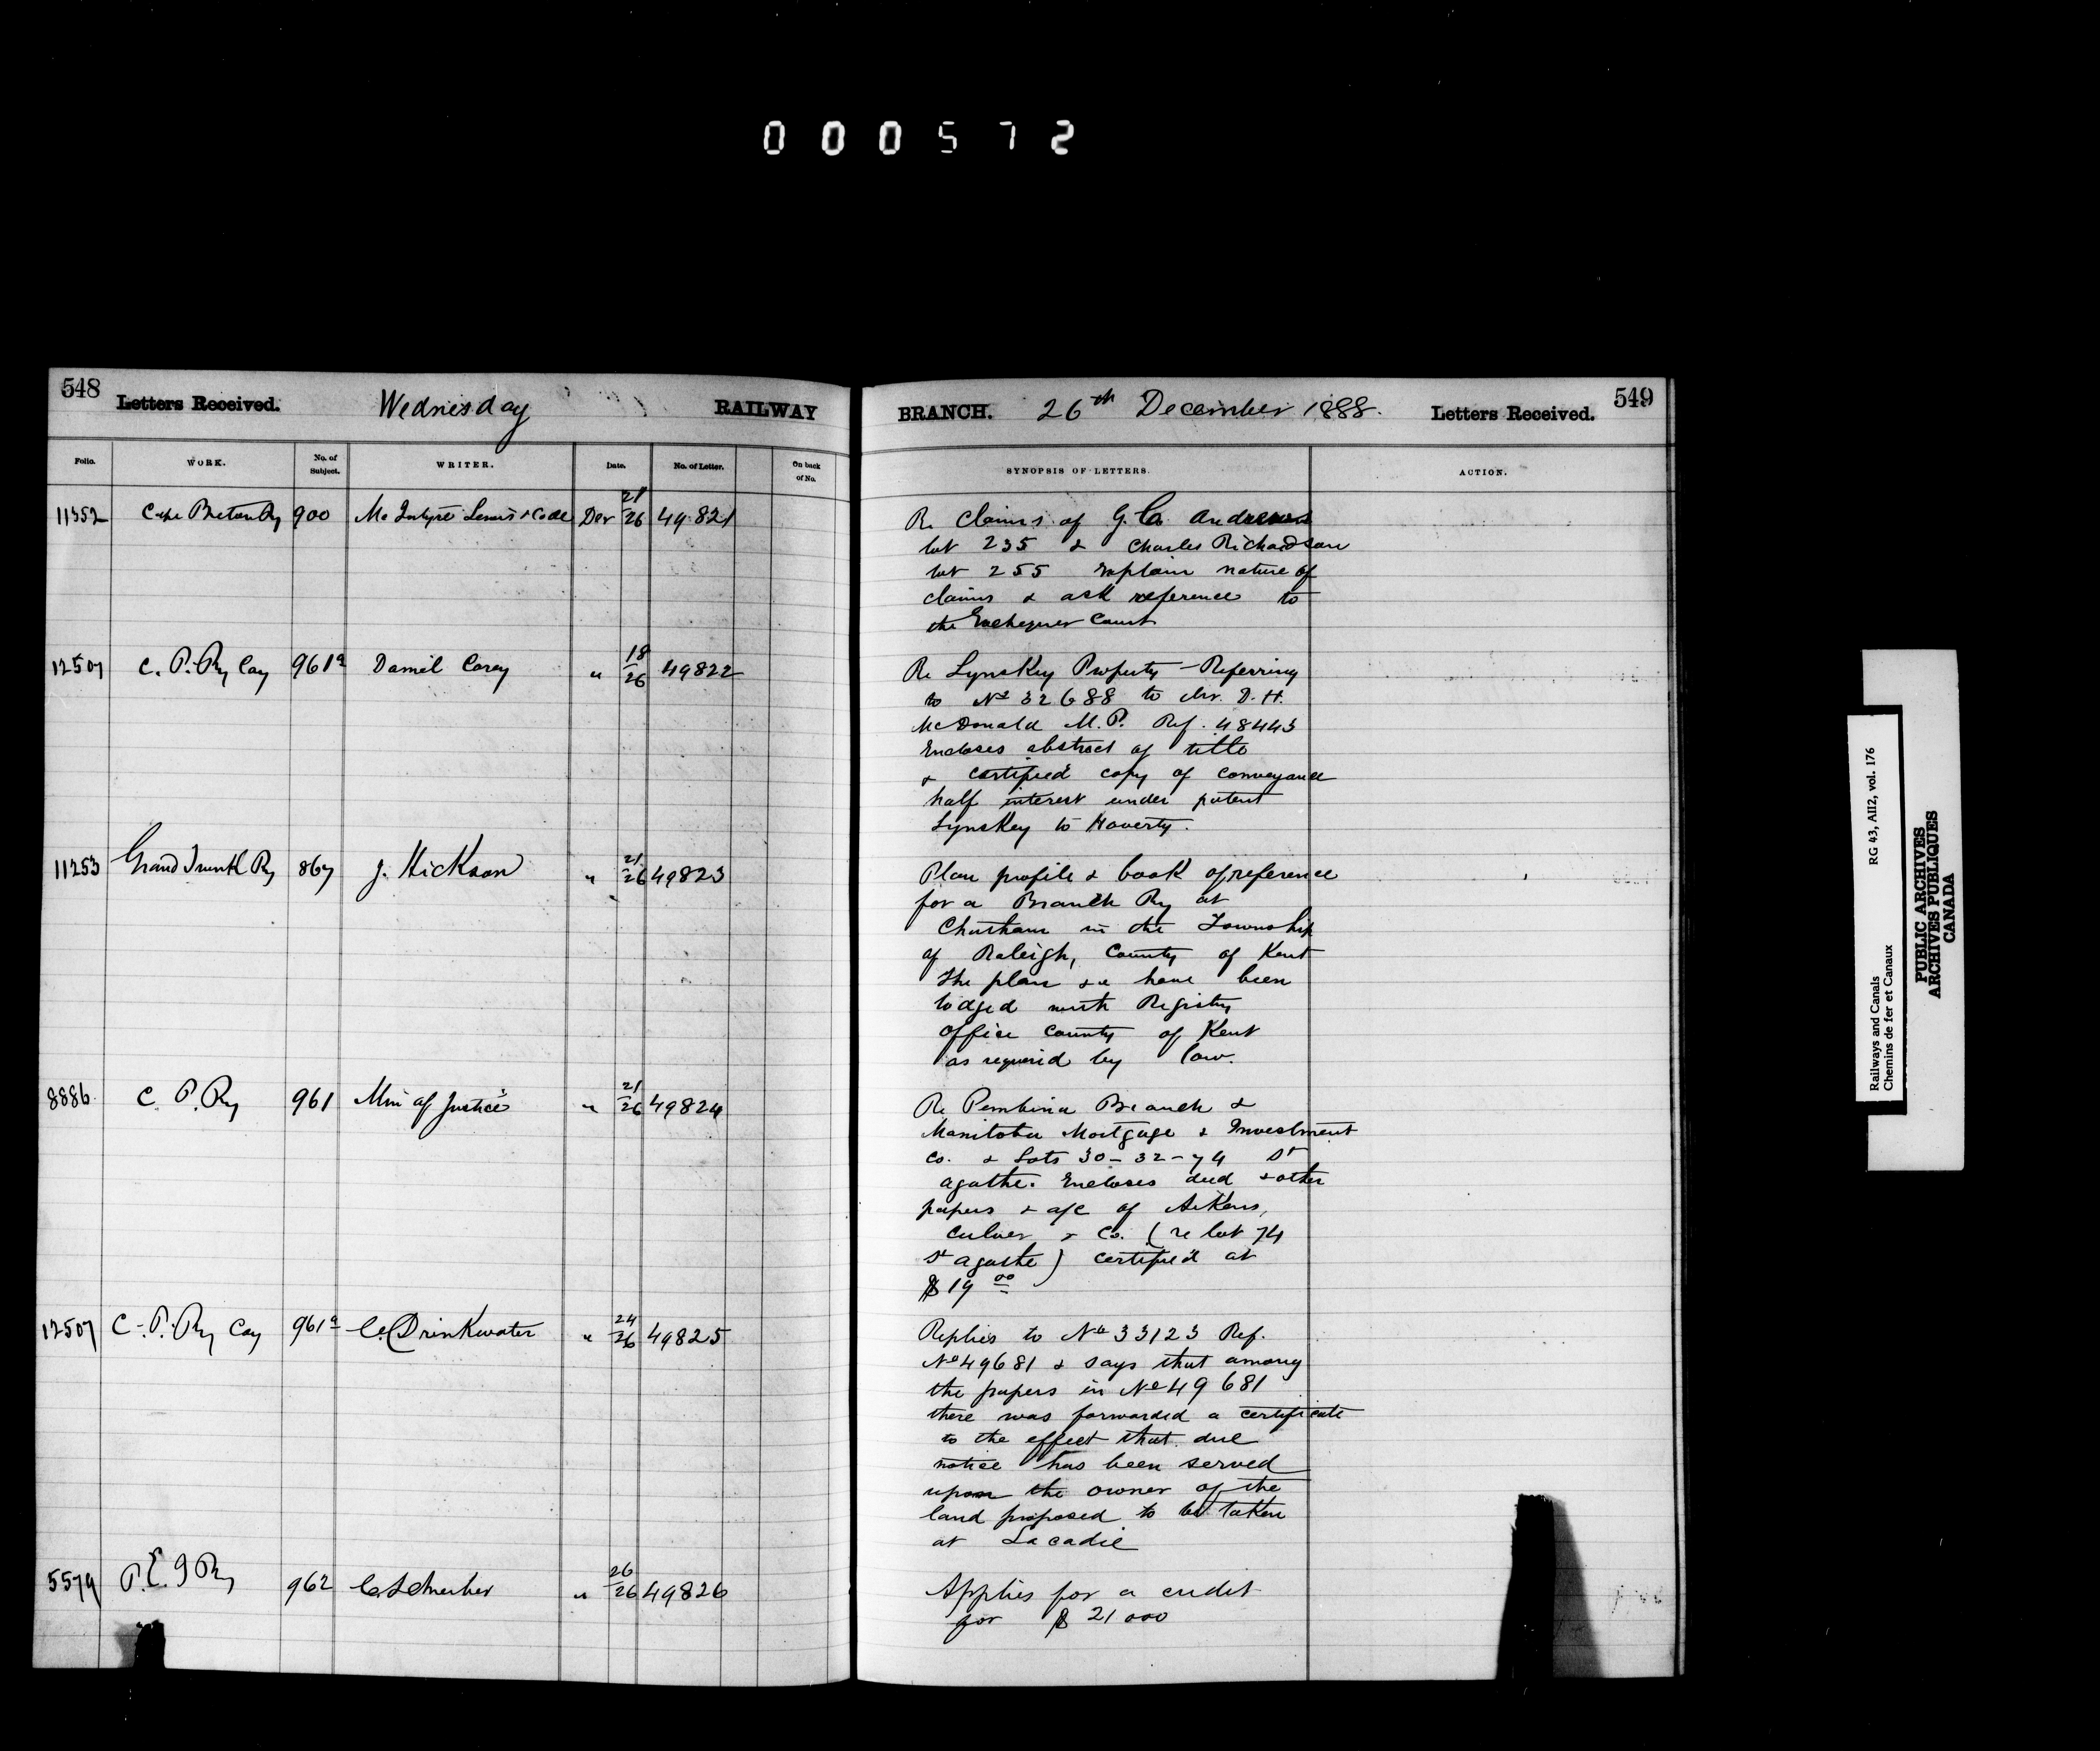 000572
548 Letters Received. Wednesday RAILWAY
Folio. WORK. No. of Subject. WRITER. Date. No. of Letter. On back of No.
11352 Cape Breton Ry 900 McIntyre Lewis & Code Dec 21/26 49821
12507 C. P. Ry Coy 961a Daniel Carey " 18/26 49822
11253 Grand Trunk Ry 867 J. Hickson " 21/26 49823
8886 C. P. Ry 961 Min of Justice " 21/26 49824
12507 C. P. Ry Coy 961a C. Drinkwater " 24/26 49825
5579 P. E. I Ry 962 C. Schreiber " 26/26 49826
BRANCH. 26th December 1888. Letters Received. 549
SYNOPSIS OF LETTERS. ACTION.
Re Claims of G. Andrews
lot 235 & Charles Richardson
lot 255 explain nature of
claims & ask reference to
the Exchequer Court
Re Lynskey Property - Referring
to No 32688 to Mr. D. H.
McDonald M.P. Ref. 48443
Encloses abstract of title
& certified copy of conveyance
half interest under patent
Lynskey to Haverty.
Plan profile & book of reference
for a Branch Ry at
Chatham in the Township
of Raleigh, County of Kent
The plan &c have been
lodged with Registry
Office County of Kent
as required by law.
Re Pembina Branch &
Manitoba Mortgage & Investment
Co. & Lots 30-32-74 St
Agathe. Encloses deed & other
papers & a/c of Aikens,
Culver & Co. (re lot 74
St Agathe) certified at
$19 00
Replies to No 33123 Ref.
No 49681 & says that among
the papers in No 49681
there was forwarded a certificate
to the effect that due
notice has been served
upon the owner of the
land proposed to be taken
at Lacadie
Applies for a credit
for $21000
Railways and Canals RG 43, AII2, vol. 176
Chemins de fer et Canaux
PUBLIC ARCHIVES
ARCHIVES PUBLIQUES
CANADA